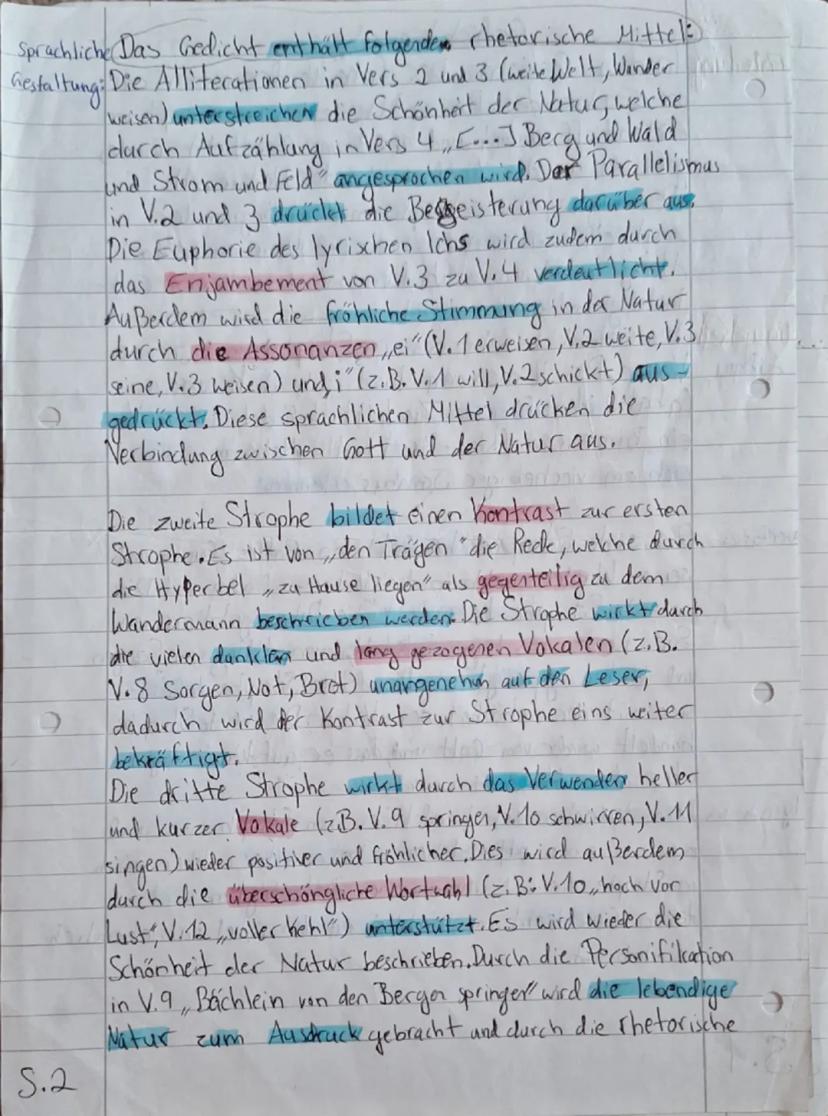 Sprachliche Das Gedicht enthält folgenden rhetorische Mittel:
Gestaltung: Die Alliterationen in Vers 2 und 3 (weite Welt, Wunder
weisen) unterstreichen die Schönheit der Natur, welche
durch Aufzählung in Vers 4 „[...] Berg und Wald
und Strom und Feld" angesprochen wird. Der Parallelismus
in V.2 und 3 drückt die Begeisterung darüber aus.
Die Euphorie des lyrischen Ichs wird zudem durch
das Enjambement von V.3 zu V.4 verdeutlicht.
Außerdem wird die fröhliche Stimmung in der Natur
durch die Assonanzen „ei" (V.1 erweisen, V.2 weite, V.3
seine, V.3 weisen) und „i" (z.B. V.1 will, V.2 schickt) aus-
gedrückt. Diese sprachlichen Mittel drücken die
Verbindung zwischen Gott und der Natur aus.
Die zweite Strophe bildet einen Kontrast zur ersten
Strophe. Es ist von „den Trägen" die Rede, welche durch
die Hyperbel „zu Hause liegen" als gegenteilig zu dem
Wandermann beschrieben werden. Die Strophe wirkt durch
die vielen dunklen und lang gezogenen Vokalen (z.B.
V.8 Sorgen, Not, Brot) unangenehm auf den Leser,
dadurch wird der Kontrast zur Strophe eins weiter
bekräftigt.
Die dritte Strophe wirkt durch das Verwenden heller
und kurzer Vokale (z.B. V.9 springen, V.10 schwirren, V.11
singen) wieder positiver und fröhlicher. Dies wird außerdem
durch die überschöngliche Wortwahl (z.B: V.10 „hoch vor
Lust", V.12 „voller Kehl") unterstützt. Es wird wieder die
Schönheit der Natur beschrieben. Durch die Personifikation
in V.9 „Bächlein von den Bergen springen" wird die lebendige
Natur zum Ausdruck gebracht und durch die rhetorische
S.2